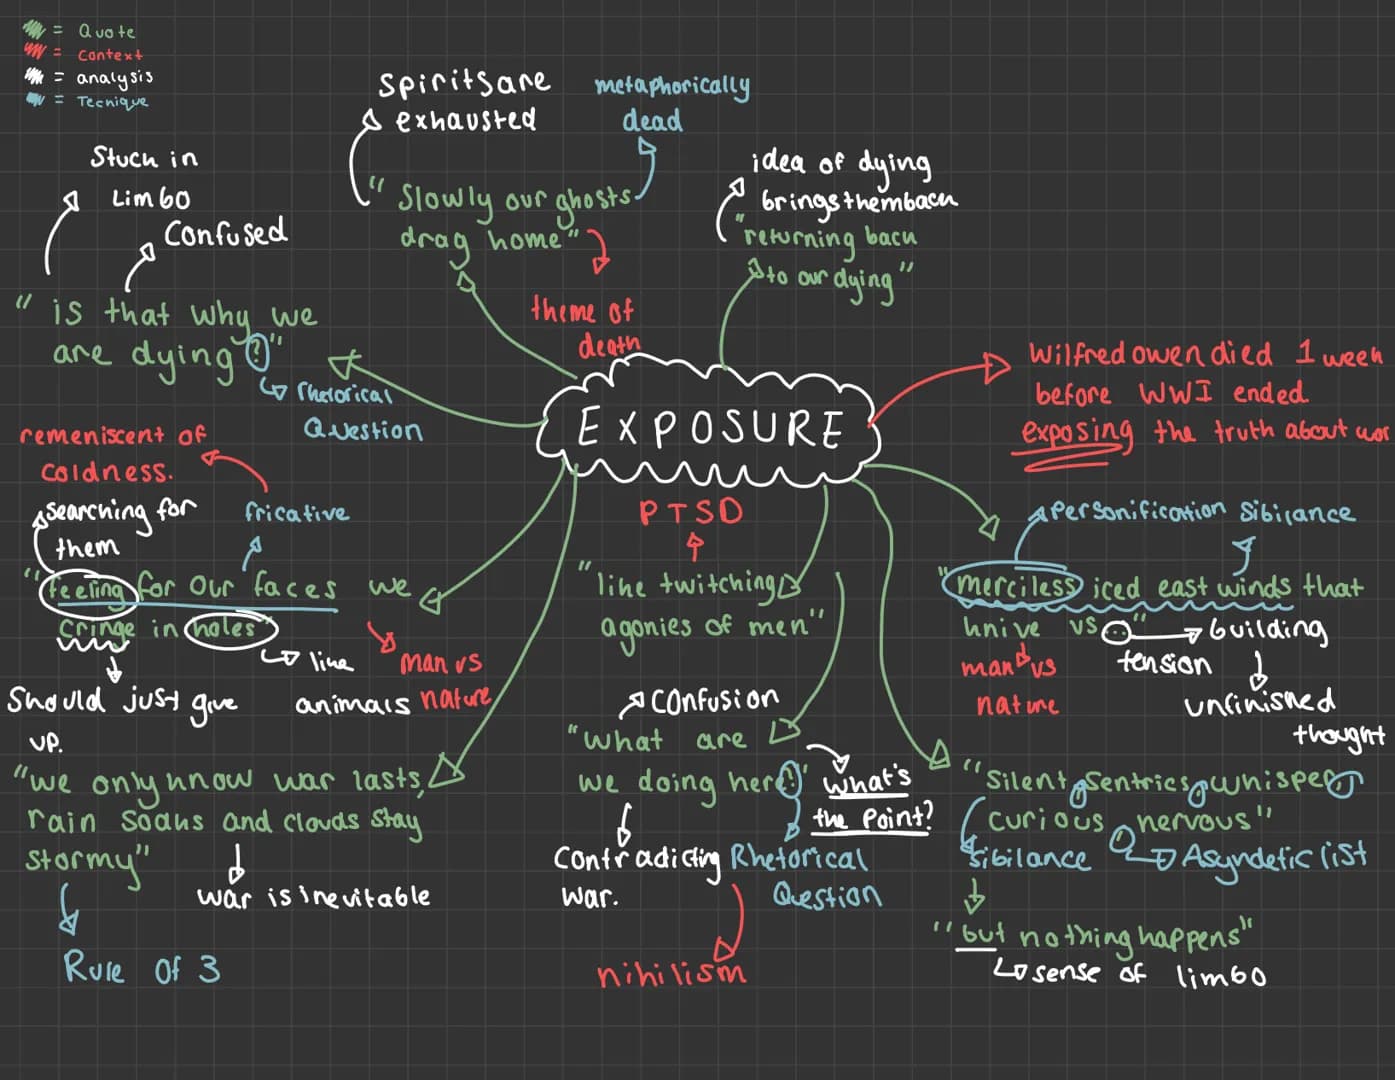 = Quote
= Context
= analysis
= Tecnique
Spirits are
exhausted
metaphorically
dead
Stuck in
Limbo
Confused
idea of dying
brings them back
"Slowly our ghosts
drag home"
"returning back
to our dying"
theme of
death
"is that why we
are dying?"
Rhetorical
Question
EXPOSURE
Wilfred owen died 1 week
before WWI ended
exposing the truth about war
remeniscent of
coldness.
searching for
them
fricative
"feeling for our faces we
cringe in holes"
like
animals
man vs
nature
Should just give
up.
PTSD
"like twitching
agonies of men"
personification
Sibilance
"merciless iced east winds that
knive us..."
building
tension
man vs
nature
unfinished
thought
confusion
"what are
we doing here?"
what's
the point?
Contradicting
war.
Rhetorical
Question
nihilism
"we only know war lasts,
rain soaks and clouds stay
stormy"
war is inevitable
Rule of 3
"Silent, sentries, whisper,
curious, nervous"
sibilance
Asyndetic list
"but nothing happens"
sense of limbo